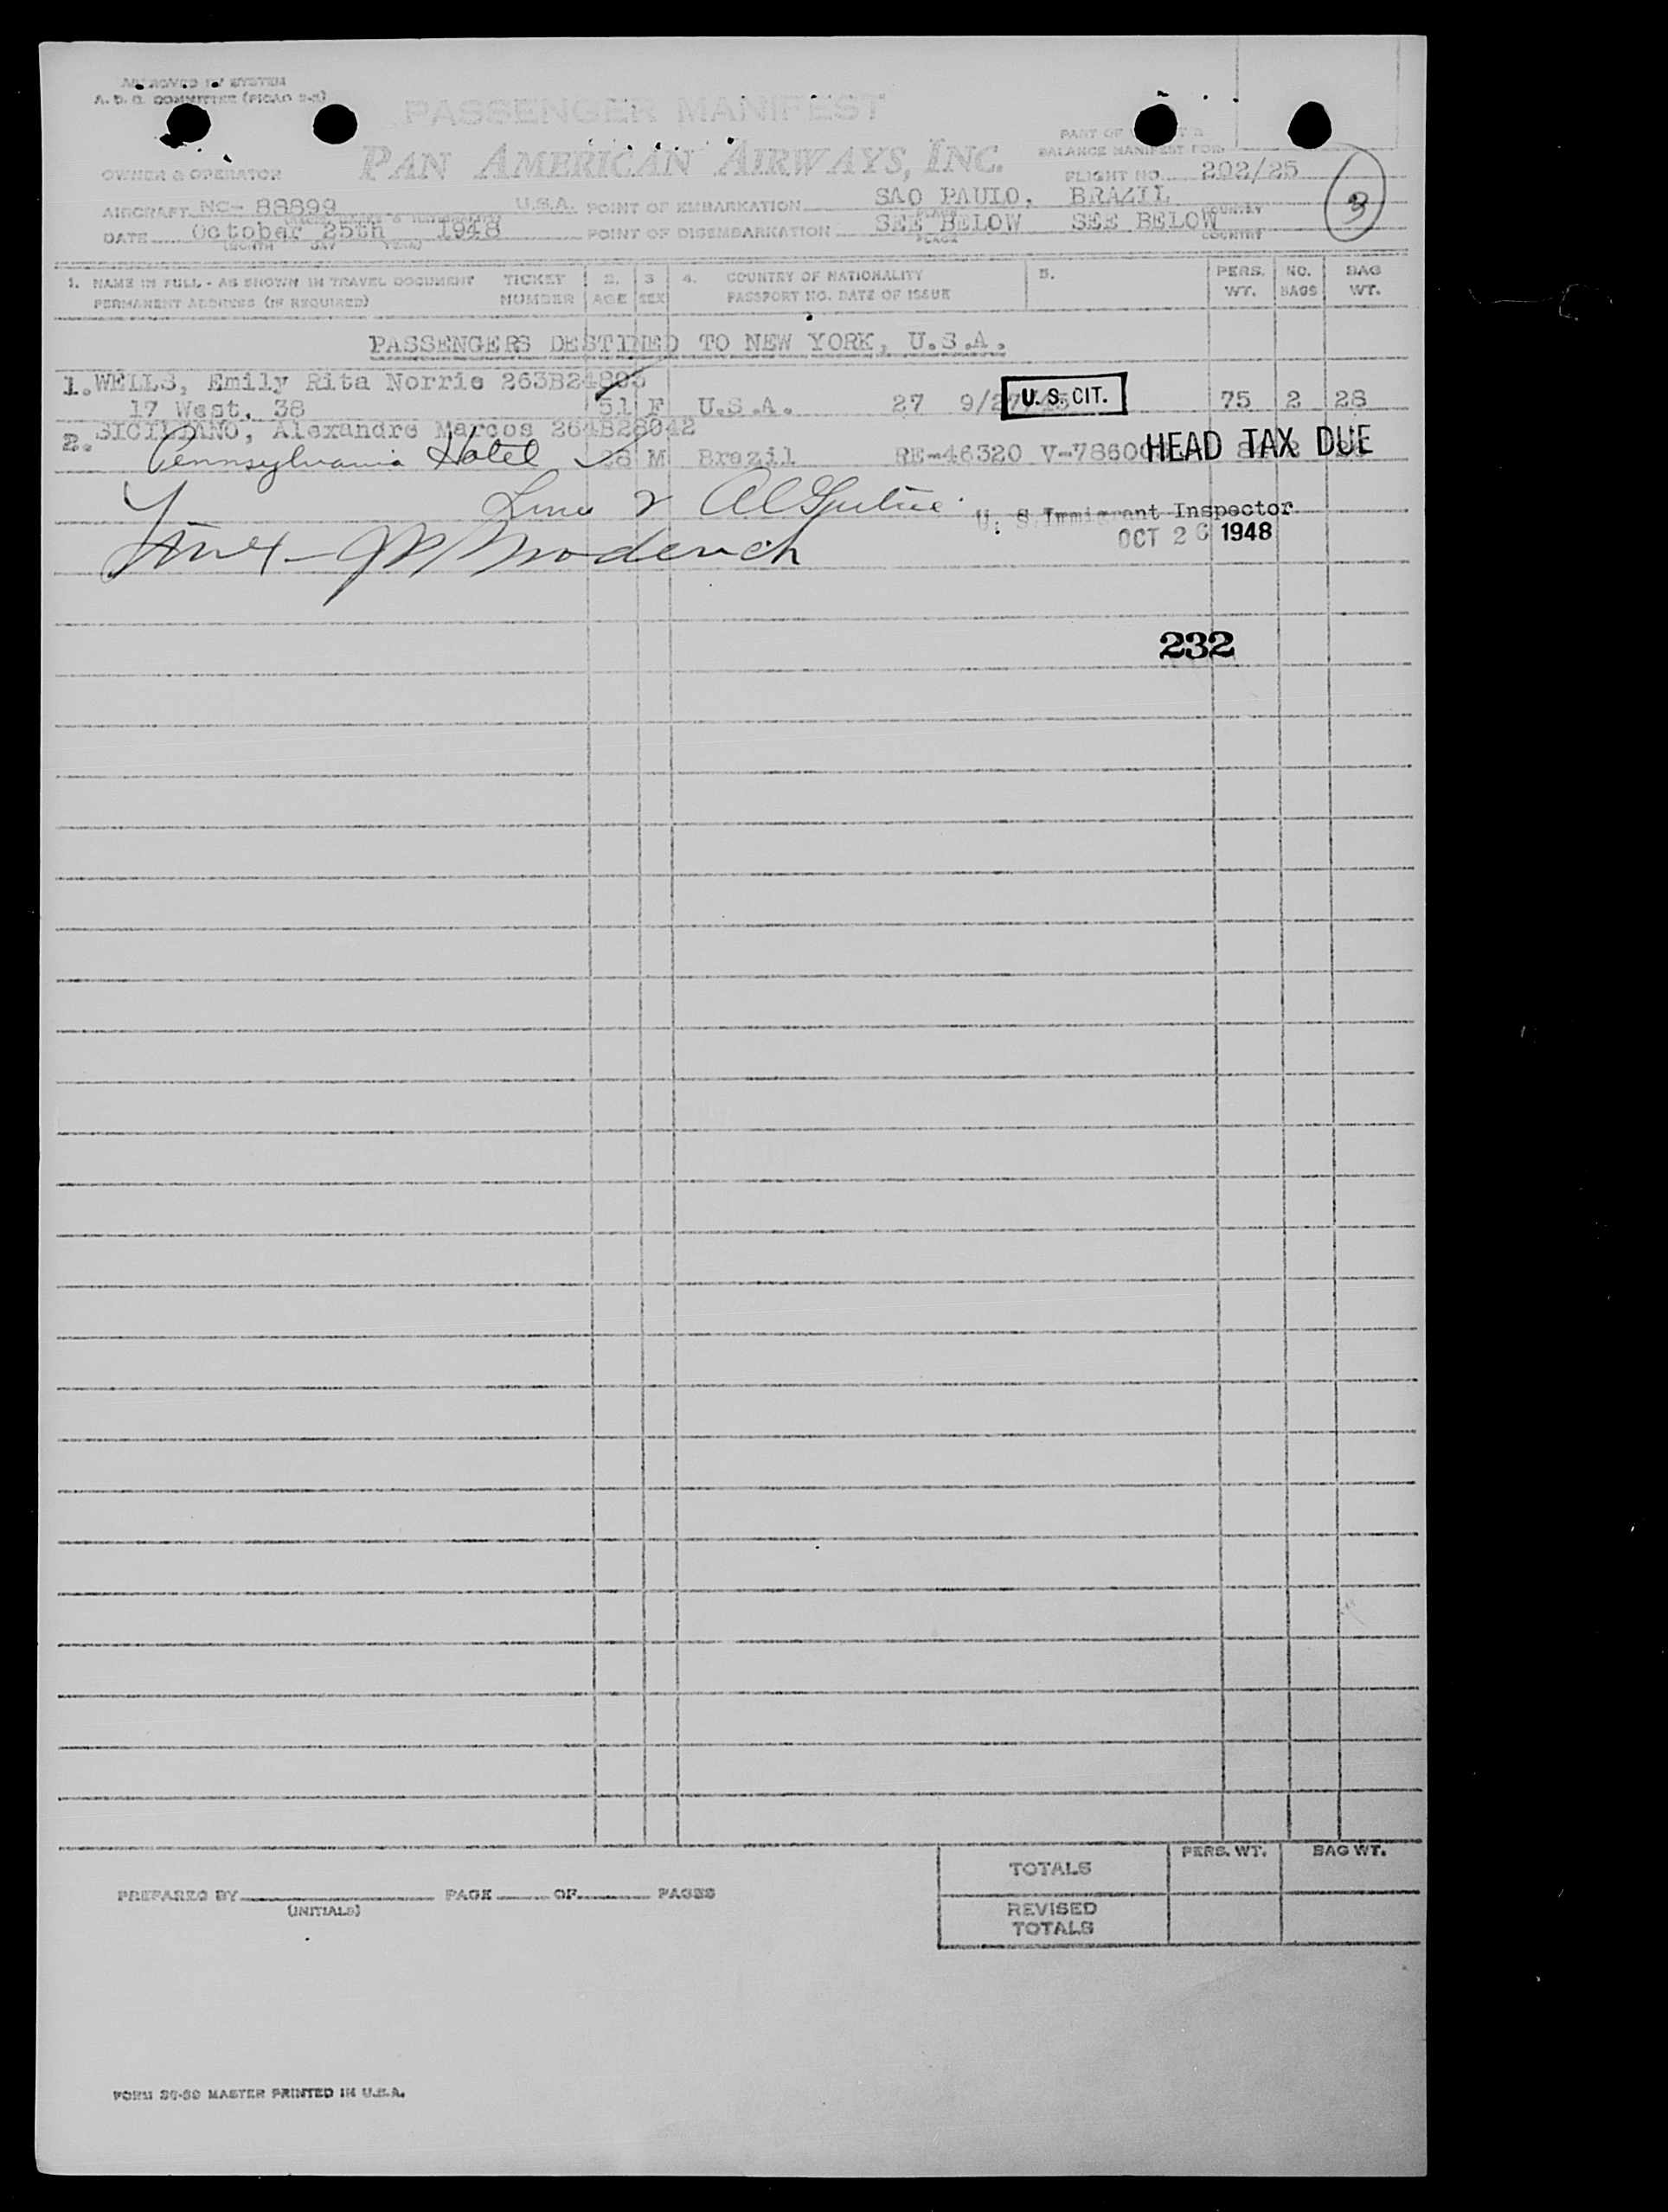 APPROVED BY SYSTEM
A. D. G. COMMITTEE (PICAO 2-2)
PASSENGER MANIFEST
PAN AMERICAN AIRWAYS, INC.
PART OF
BALANCE MANIFEST FOR
OWNER & OPERATOR
FLIGHT NO. 202/25
3
AIRCRAFT NC- 88899 U.S.A. POINT OF EMBARKATION SAO PAULO, BRAZIL
PLACE COUNTRY
DATE October 25th 1948 POINT OF DISEMBARKATION SEE BELOW SEE BELOW
(MONTH DAY YEAR) PLACE COUNTRY
1. NAME IN FULL - AS SHOWN IN TRAVEL DOCUMENT TICKET 2. 3 4. COUNTRY OF NATIONALITY 5. PERS. NO. BAG
PERMANENT ADDRESS (IF REQUIRED) NUMBER AGE SEX PASSPORT NO. DATE OF ISSUE WT. BAGS WT.
PASSENGERS DESTINED TO NEW YORK, U.S.A.
1. WELLS, Emily Rita Norrie
17 West. 38 51 F U.S.A. 27 U. S. CIT. 75 2 28
2. SICILIANO, Alexandre Marcos 264B28042
Pennsylvania Hotel M Brazil RE-46320 HEAD TAX DUE
U. S. Immigrant Inspector
OCT 26 1948
232
TOTALS PERS. WT. BAG WT.
PREPARED BY PAGE OF PAGES
(INITIALS)
REVISED
TOTALS
MASTER PRINTED IN U.S.A.